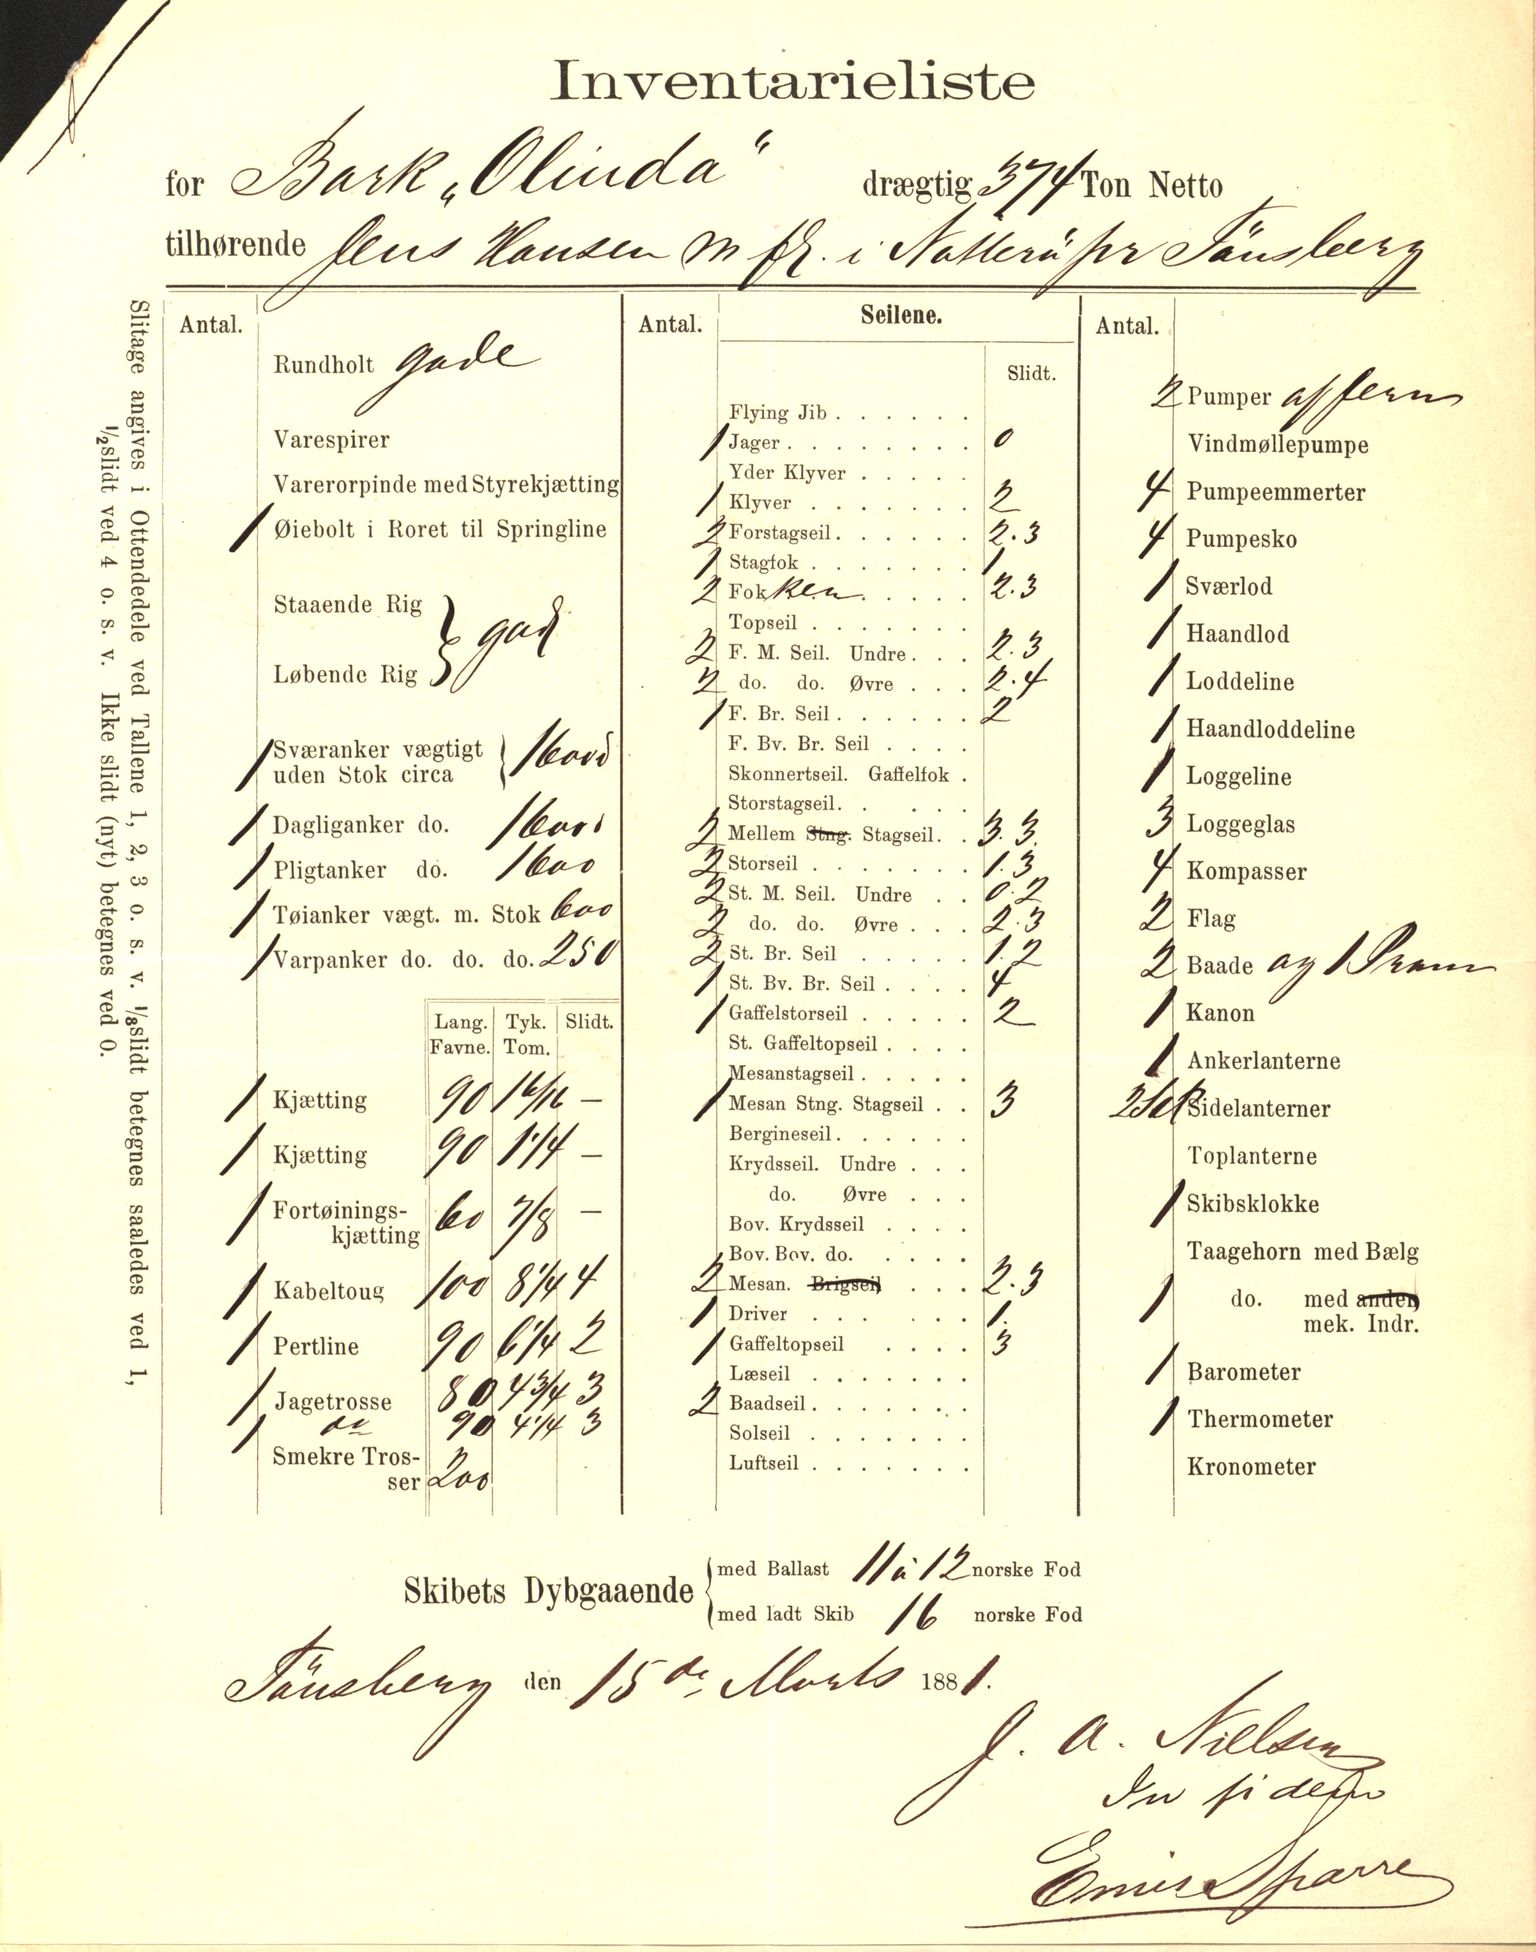 Inventarieliste
for Bark „Olinda“ drægtig 374 Ton Netto
tilhørende Jens Hansen m fl. i Nötterö pr Tönsberg
Slitage angives i Ottendedele ved Tallene 1, 2, 3 o. s. v. 1/8 slidt betegnes saaledes ved 1,
1/2 slidt ved 4 o. s. v. Ikke slidt (nyt) betegnes ved 0.
Antal.
Rundholt gode
Varespirer
Varerorpinde med Styrekjætting
1 Øiebolt i Roret til Springline
Staaende Rig } god
Løbende Rig
1 Sværanker vægtigt
uden Stok circa } 1600
1 Dagliganker do. 1600
1 Pligtanker do. 1600
1 Tøianker vægt. m. Stok 600
1 Varpanker do. do. do. 250
Lang. Tyk. Slidt.
Favne. Tom.
1 Kjætting 90 1 6/16 –
1 Kjætting 90 1 1/4 –
1 Fortøinings-
kjætting 60 7/8 –
1 Kabeltoug 100 8 1/4 4
1 Pertline 90 6 1/4 2
1 Jagetrosse 80 4 3/4 3
1 do 90 4 1/4 3
Smekre Tros-
ser 200
Antal. Seilene.
Slidt.
Flying Jib
1 Jager 0
Yder Klyver
1 Klyver 2
2 Forstagseil 2.3
1 Stagfok 1
2 Fokken 2.3
Topseil
2 F. M. Seil. Undre 2.3
2 do. do. Øvre 2.4
1 F. Br. Seil 2
F. Bv. Br. Seil
Skonnertseil. Gaffelfok
Storstagseil
2 Mellem Stng. Stagseil 3.3.
2 Storseil 1.3
2 St. M. Seil. Undre 0.2
2 do. do. Øvre 2.3
2 St. Br. Seil 1.2
1 St. Bv. Br. Seil 4
1 Gaffelstorseil 2
St. Gaffeltopseil
Mesanstagseil
1 Mesan Stng. Stagseil 3
Bergineseil
Krydsseil. Undre
do. Øvre
Bov. Krydsseil
Bov. Bov. do.
2 Mesan. Brigseil 2.3
1 Driver 1.
1 Gaffeltopseil 3
Læseil
2 Baadseil
Solseil
Luftseil
Antal.
2 Pumper af Jern
Vindmøllepumpe
4 Pumpeemmerter
4 Pumpesko
1 Sværlod
1 Haandlod
1 Loddeline
1 Haandloddeline
1 Loggeline
3 Loggeglas
4 Kompasser
2 Flag
2 Baade og 1 Pram
1 Kanon
1 Ankerlanterne
2 Sidelanterner
Toplanterne
1 Skibsklokke
Taagehorn med Bælg
1 do. med anden
mek. Indr.
1 Barometer
1 Thermometer
Kronometer
Skibets Dybgaaende { med Ballast 11 à 12 norske Fod
med ladt Skib 16 norske Fod
Tönsberg den 15 de Marts 1881.
J. A. Nielsen
In fidem
Emil Sparre